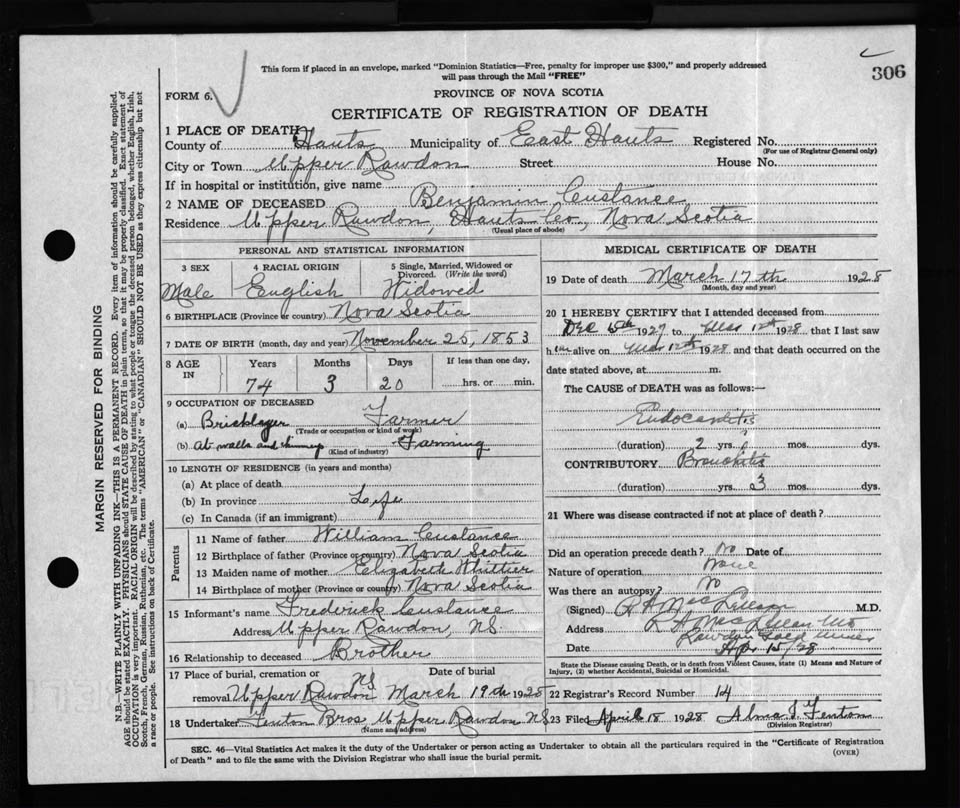 306
This form if placed in an envelope, marked "Dominion Statistics—Free, penalty for improper use $300," and properly addressed
will pass through the Mail "FREE"
FORM 6.
PROVINCE OF NOVA SCOTIA
CERTIFICATE OF REGISTRATION OF DEATH
MARGIN RESERVED FOR BINDING
N.B.—WRITE PLAINLY, WITH UNFADING INK—THIS IS A PERMANENT RECORD. Every items of information should be carefully supplied.
AGE should be stated EXACTLY. PHYSICIANS should STATE CAUSE OF DEATH in plain terms, so that it may be properly classified. Exact statement of
OCCUPATION is very important. RACIAL ORIGIN will be described by stating to what people or tongue the deceased person belonged, whether English, Irish,
Scotch, French, German, Russian, Ruthenian, etc. The terms "AMERICAN" or "CANADIAN" SHOULD NOT BE USED as they express citizenship but not
a race or people. See instructions on back of Certificate.
1 PLACE OF DEATH
County of Hants Municipality of East Hants Registered No.
(For use of Registrar General only)
City or Town Upper Rawdon Street House No.
If in hospital or institution, give name
2 NAME OF DECEASED Benjamin Custance
Residence Upper Rawdon, Hants Co., Nova Scotia
(Usual place of abode)
PERSONAL AND STATISTICAL INFORMATION
3 SEX 4 RACIAL ORIGIN 5 Single, Married, Widowed or
Divorced. (Write the word)
Male English Widowed
6 BIRTHPLACE (Province or country) Nova Scotia
7 DATE OF BIRTH (month, day and year) November 25, 1853
8 AGE IN Years Months Days If less than one day,
74 3 20 hrs. or min.
9 OCCUPATION OF DECEASED
(a) Bricklayer Farmer
(Trade or occupation or kind of work)
(b) At walls and chimney Farming
(Kind of industry)
10 LENGTH OF RESIDENCE (in years and months)
(a) At place of death
(b) In province Life
(c) In Canada (if an immigrant)
Parents
11 Name of father William Custance
12 Birthplace of father (Province or country) Nova Scotia
13 Maiden name of mother Elizabeth Whittier
14 Birthplace of mother (Province or country) Nova Scotia
15 Informant's name Frederick Custance
Address Upper Rawdon, NS
16 Relationship to deceased Brother
17 Place of burial, cremation or Date of burial
removal Upper Rawdon NS March 19th 1928
18 Undertaker Fenton Bros Upper Rawdon NS
(Name and address)
MEDICAL CERTIFICATE OF DEATH
19 Date of death March 17th 1928
(Month, day and year)
20 I HEREBY CERTIFY that I attended deceased from
Dec 1927 to Mar 12th 1928, that I last saw
h im alive on Mar 12th 1928 and that death occurred on the
date stated above, at m.
The CAUSE OF DEATH was as follows:—
Endocarditis
(duration) 2 yrs. mos. dys.
CONTRIBUTORY Bronchitis
(duration) yrs. 3 mos. dys.
21 Where was disease contracted if not at place of death?
Did an operation precede death? No Date of
Nature of operation None
Was there an autopsy? No
(Signed) R H MacLellan M.D.
Address R H MacLellan MD
Rawdon Gold Mines
Date Apr 15/28
State the Disease causing Death, or in death from Violent Causes, state (1) Means and Nature of
Injury, (2) whether Accidental, Suicidal or Homicidal.
22 Registrar's Record Number 14
23 Filed April 18 1928 Alma J. Fenton
(Division Registrar)
SEC. 46—Vital Statistics Act makes it the duty of the Undertaker or person acting as Undertaker to obtain all the particulars required in the "Certificate of Registration
of Death" and to file the same with the Division Registrar who shall issue the burial permit. (OVER)